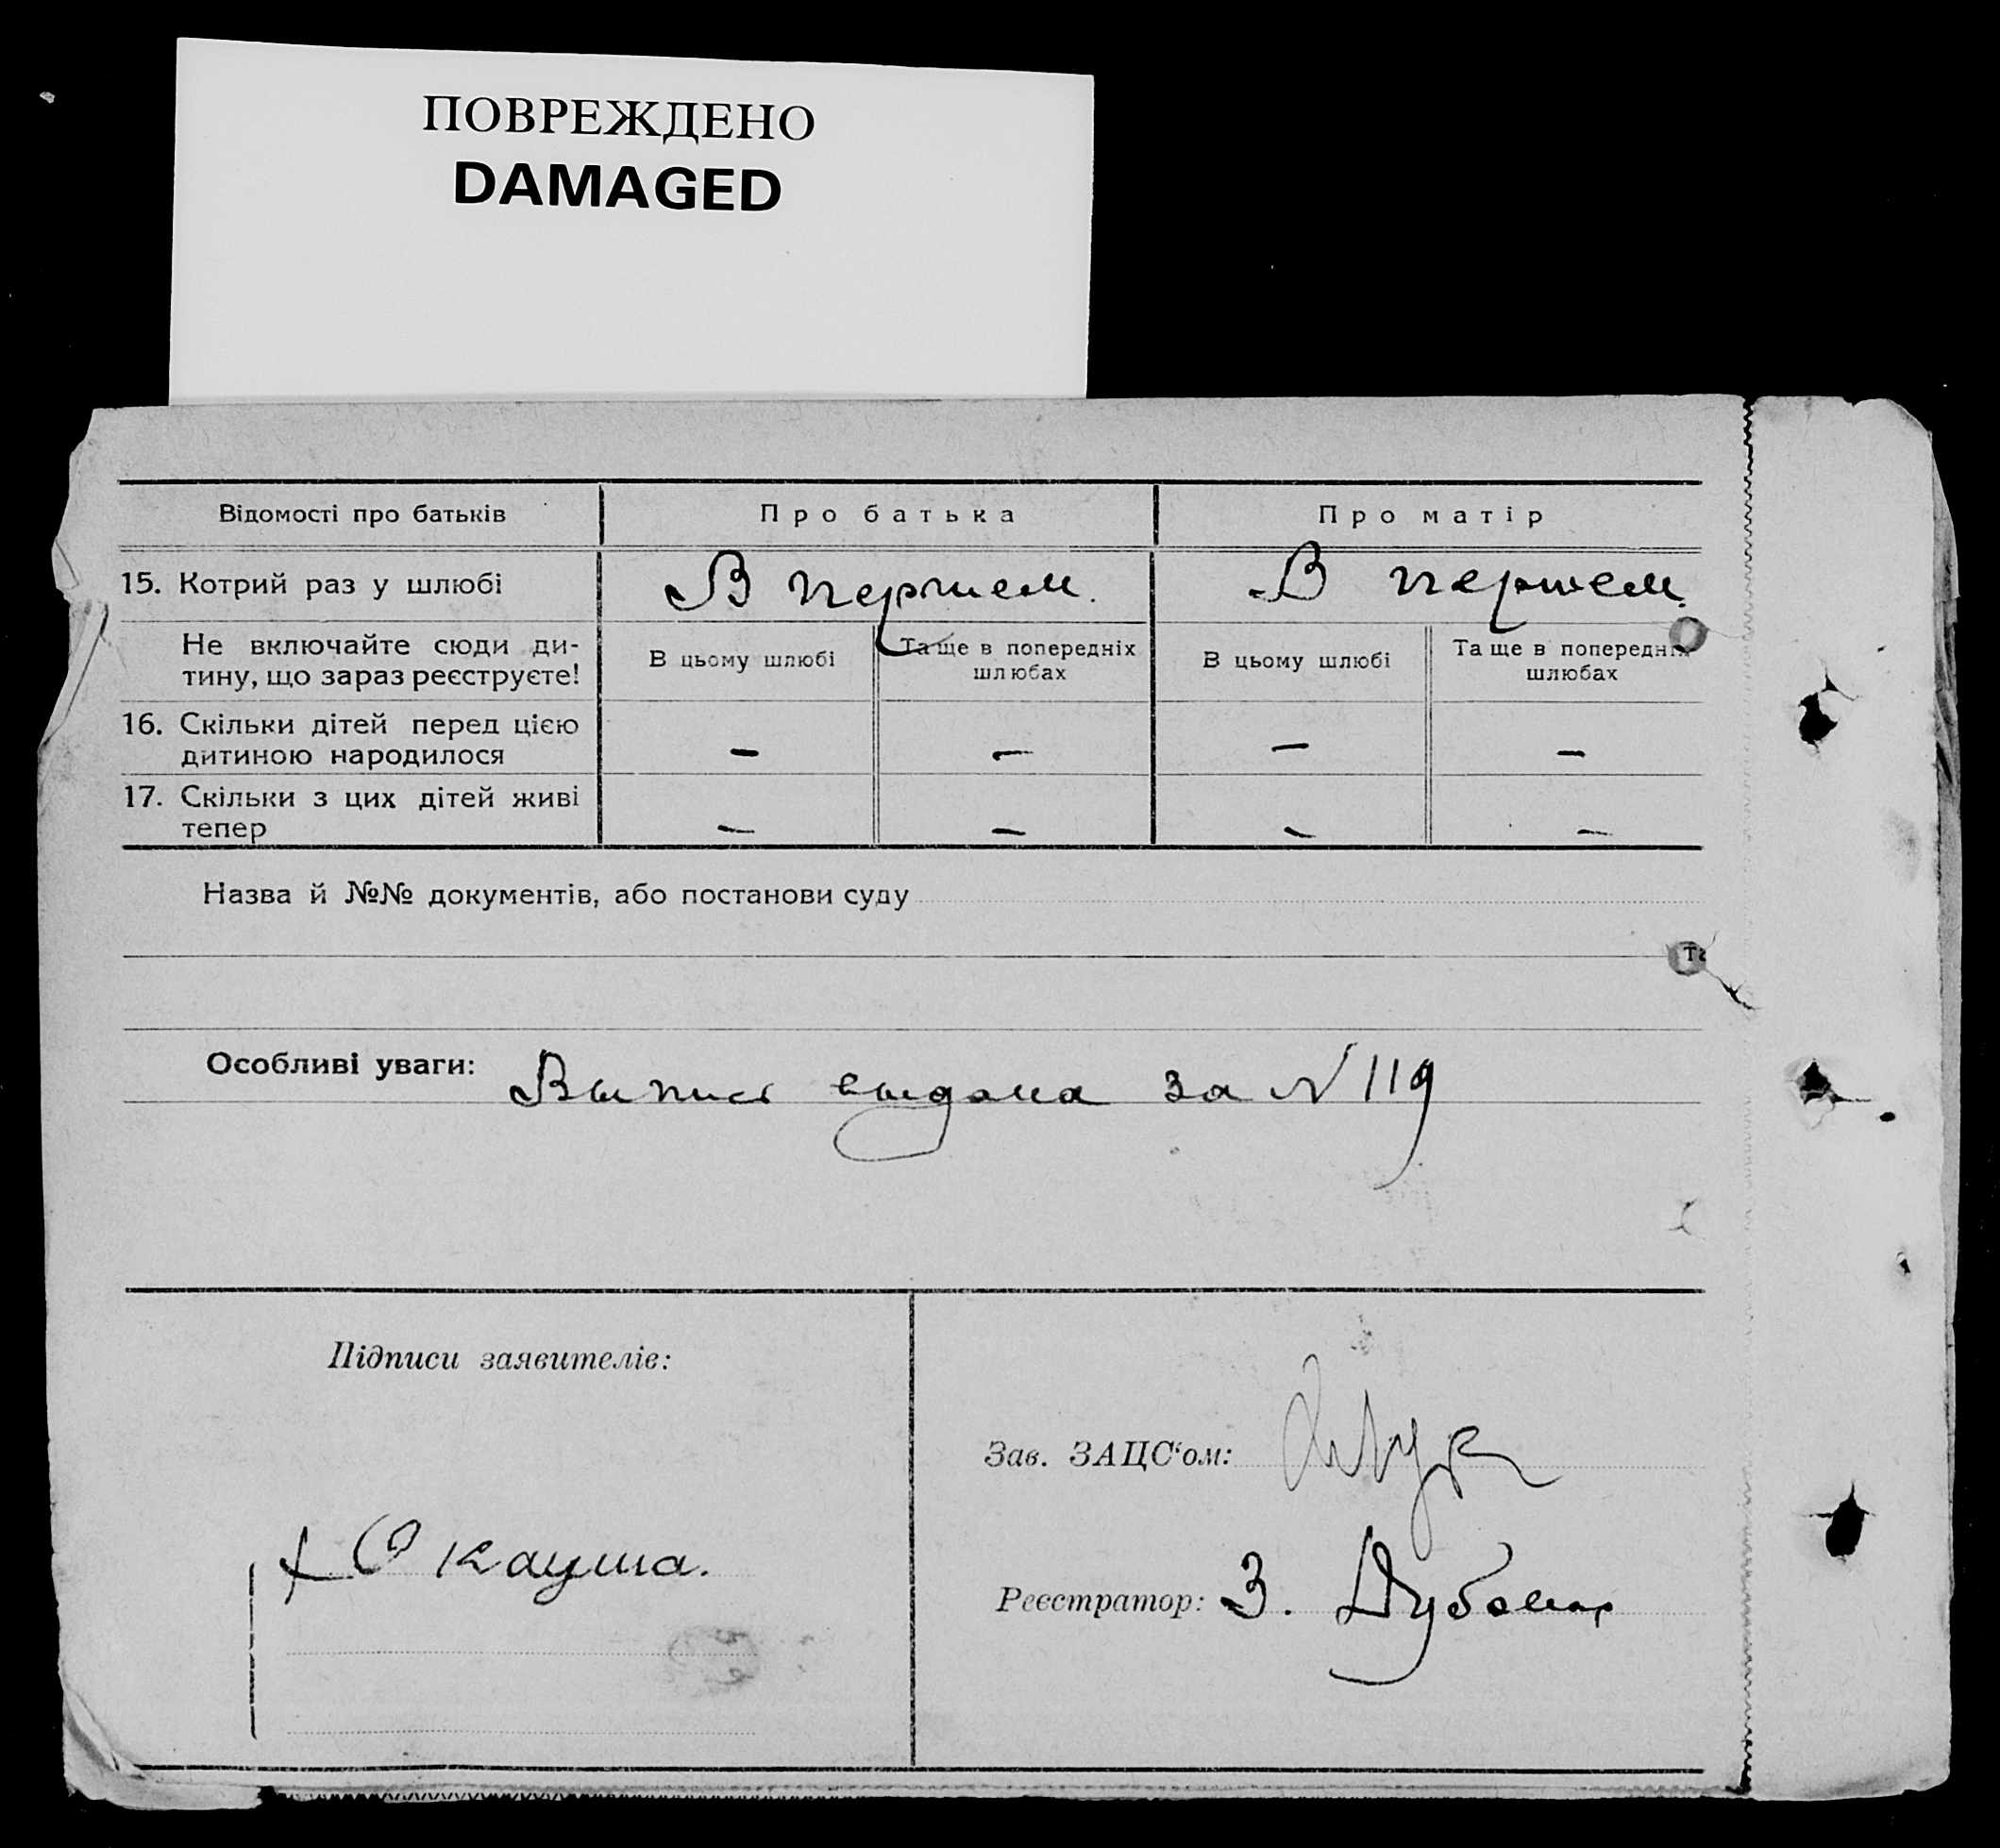 ПОВРЕЖДЕНО
DAMAGED
Відомості про батьків
Про батька
Про матір
15. Котрий раз у шлюбі
В першем.
В першем.
Не включайте сюди ди-
тину, що зараз реєструєте!
В цьому шлюбі
Та ще в попередніх
шлюбах
В цьому шлюбі
Та ще в попередніх
шлюбах
16. Скільки дітей перед цією
дитиною народилося
–
–
–
–
17. Скільки з цих дітей живі
тепер
–
–
–
–
Назва й №№ документів, або постанови суду
Та
Особливі уваги: Выпись выдана за N 119
Підписи заявителів:
Зав. ЗАЦС‘ом:
Окауша.
Реєстратор: З.